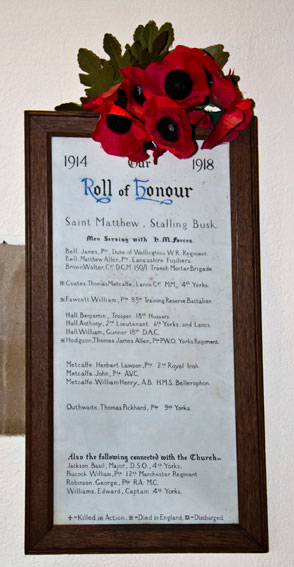 1914 Our 1918
Roll of Honour
Saint Matthew, Stalling Busk.
Men Serving with H.M. Forces.
Bell. James, Pte Duke of Wellingtons W.R. Regiment.
Bell. Matthew Allen, Pte Lancashire Fusiliers.
Brown Walter, Cpl D.C.M. 150/1 Trench Mortar Brigade
Coates. Thomas Metcalfe, Lance Cpl M.M., 4th Yorks.
Fawcett. William, Pte 83rd Training Reserve Battalion.
Hall. Benjamin, Trooper 18th Hussars
Hall. Anthony, 2nd Lieutenant 6th Yorks and Lancs.
Hall. William, Gunner 18th D.A.C.
Hodgson, Thomas James Allen, Pte P.W.O. Yorks Regiment.
Metcalfe. Herbert Lawson, Pte 2nd Royal Irish.
Metcalfe. John, Pte A.V.C.
Metcalfe. William Henry, A.B. H.M.S. Bellerophon.
Outhwaite. Thomas Pickhard, Pte 9th Yorks.
Also the following connected with the Church..
Jackson Basil, Major, D.S.O., 4th Yorks.
Peacock William, Pte 12th Manchester Regiment
Robinson. George, Pte R.A.M.C.
Williams. Edward, Captain 4th Yorks.
+-Killed in Action, -Died in England, -Discharged.